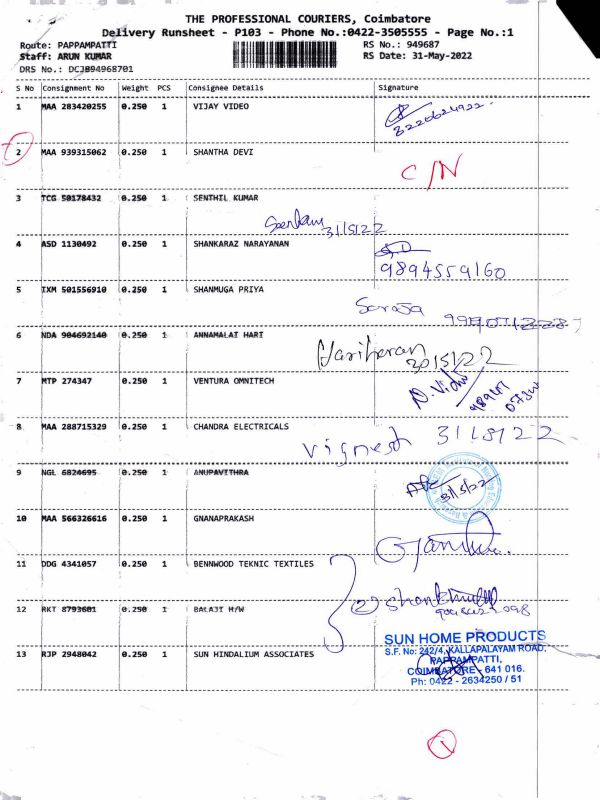 THE PROFESSIONAL COURIERS, Coimbatore
Delivery Runsheet - P103 - Phone No.:0422-3505555 - Page No.:1
Route: PAPPAMPATTI RS No.: 949687
Staff: ARUN KUMAR RS Date: 31-May-2022
DRS No.: DCJB94968701
S No Consignment No Weight PCS Consignee Details Signature
1 MAA 283420255 0.250 1 VIJAY VIDEO
8220624922
2 MAA 939315062 0.250 1 SHANTHA DEVI
C/N
3 TCG 50178432 0.250 1 SENTHIL KUMAR
31/5/22
4 ASD 1130492 0.250 1 SHANKARAZ NARAYANAN
9894559160
5 IXM 501556910 0.250 1 SHANMUGA PRIYA
Saroja
6 NDA 904692140 0.250 1 ANNAMALAI HARI
Hariharan 30/5/22
7 MTP 274347 0.250 1 VENTURA OMNITECH
8 MAA 288715329 0.250 1 CHANDRA ELECTRICALS
Vignesh 31/5/22
9 NGL 6824695 0.250 1 ANUPAVITHRA
31/5/22
10 MAA 566326616 0.250 1 GNANAPRAKASH
11 DDG 4341057 0.250 1 BENNWOOD TEKNIC TEXTILES
12 RKT 8793601 0.250 1 BALAJI H/W
(2)
13 RJP 2948042 0.250 1 SUN HINDALIUM ASSOCIATES
SUN HOME PRODUCTS
S.F. No: 242/4, KALLAPALAYAM ROAD,
PAPPAMPATTI,
COIMBATORE - 641 016.
Ph: 0422 - 2634250 / 51
1